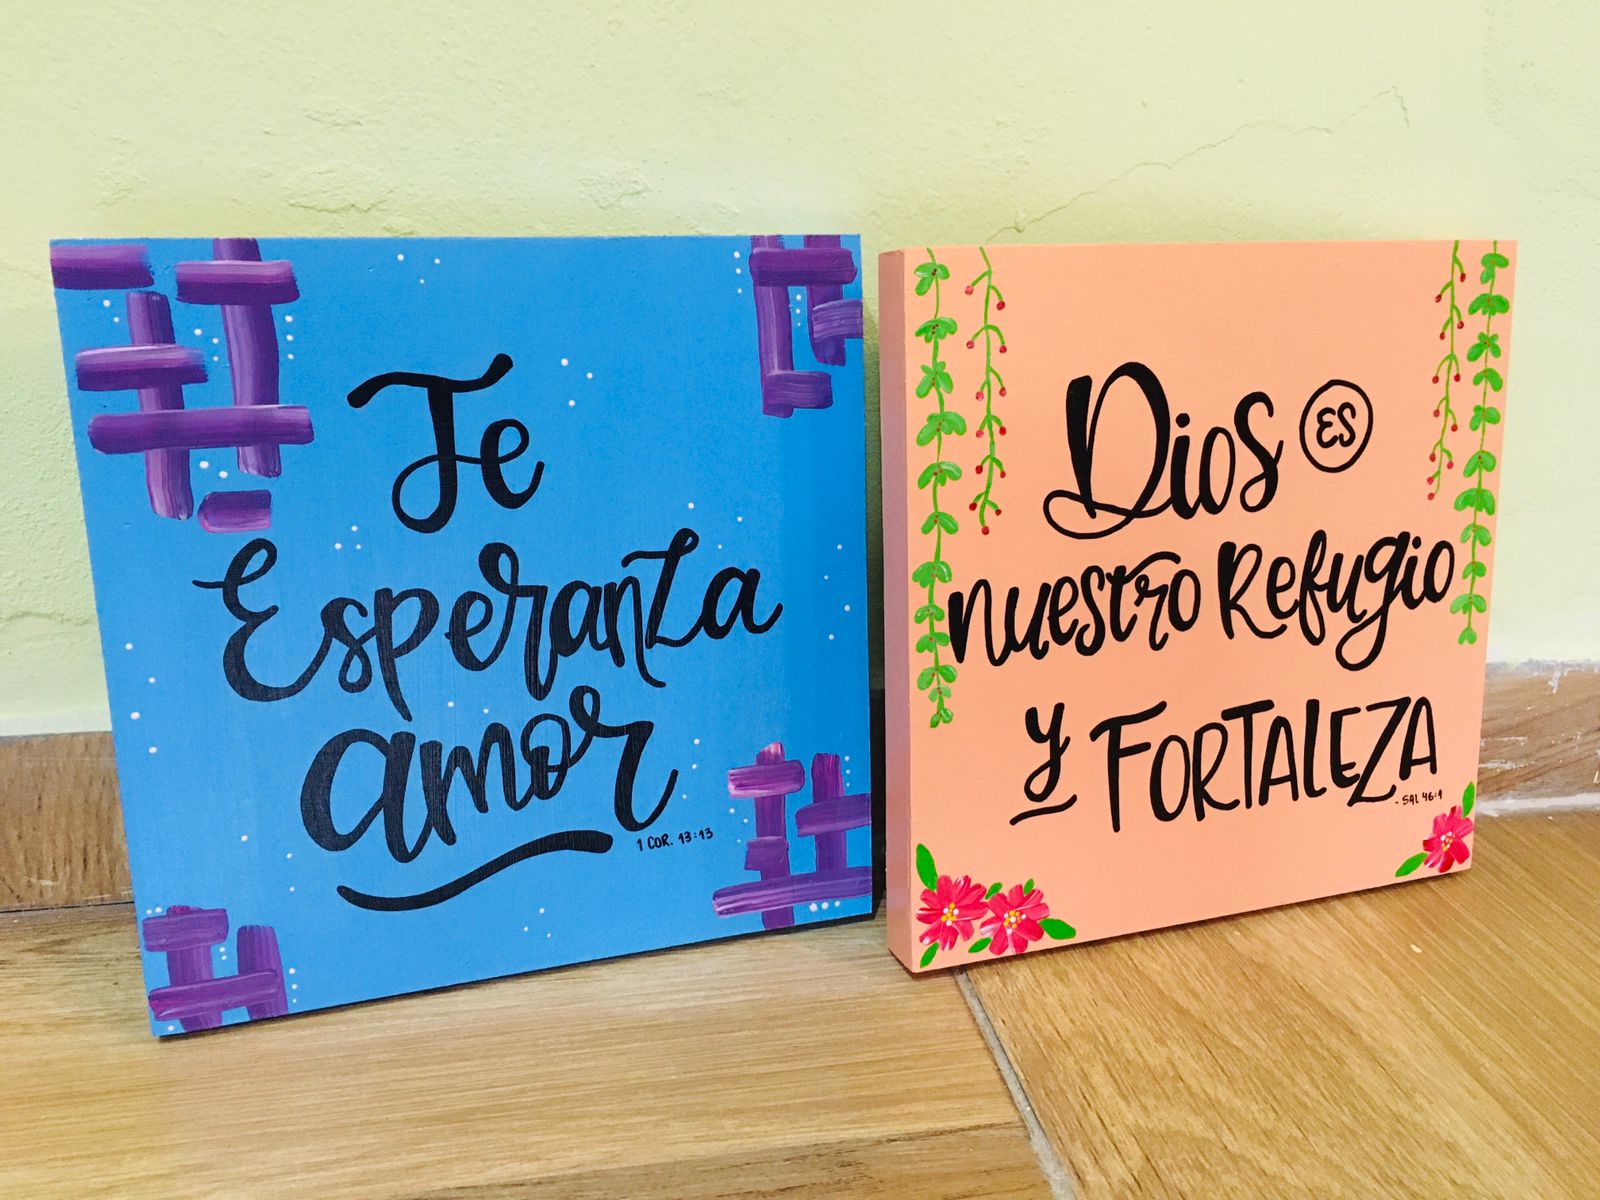 Te
Esperanza
amor
1 COR. 13:13
Dios ES
nuestro Refugio
y FORTALEZA
- SAL 46:1